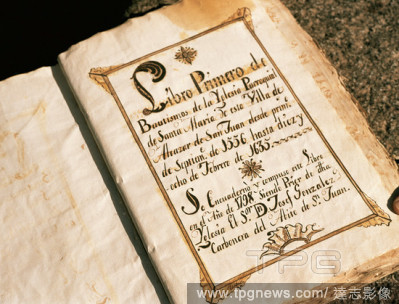 Libro Primero de
Bautismos de la Yglesia Parroquial
de Santa Maria de esta Villa de
Alcazar de San Juan desde prim.o
de Septiem. de 1556 hasta diez y
ocho de Febrero de 1635
Se Encuaderno y compuso este Libro
en el Año de 1798 Siendo Prior de dha
Yglesia El S.or D. Josef Gonzalez
Carbonera del Avito de S.n Juan.
TPG
www.tpgnews.com/達志影像